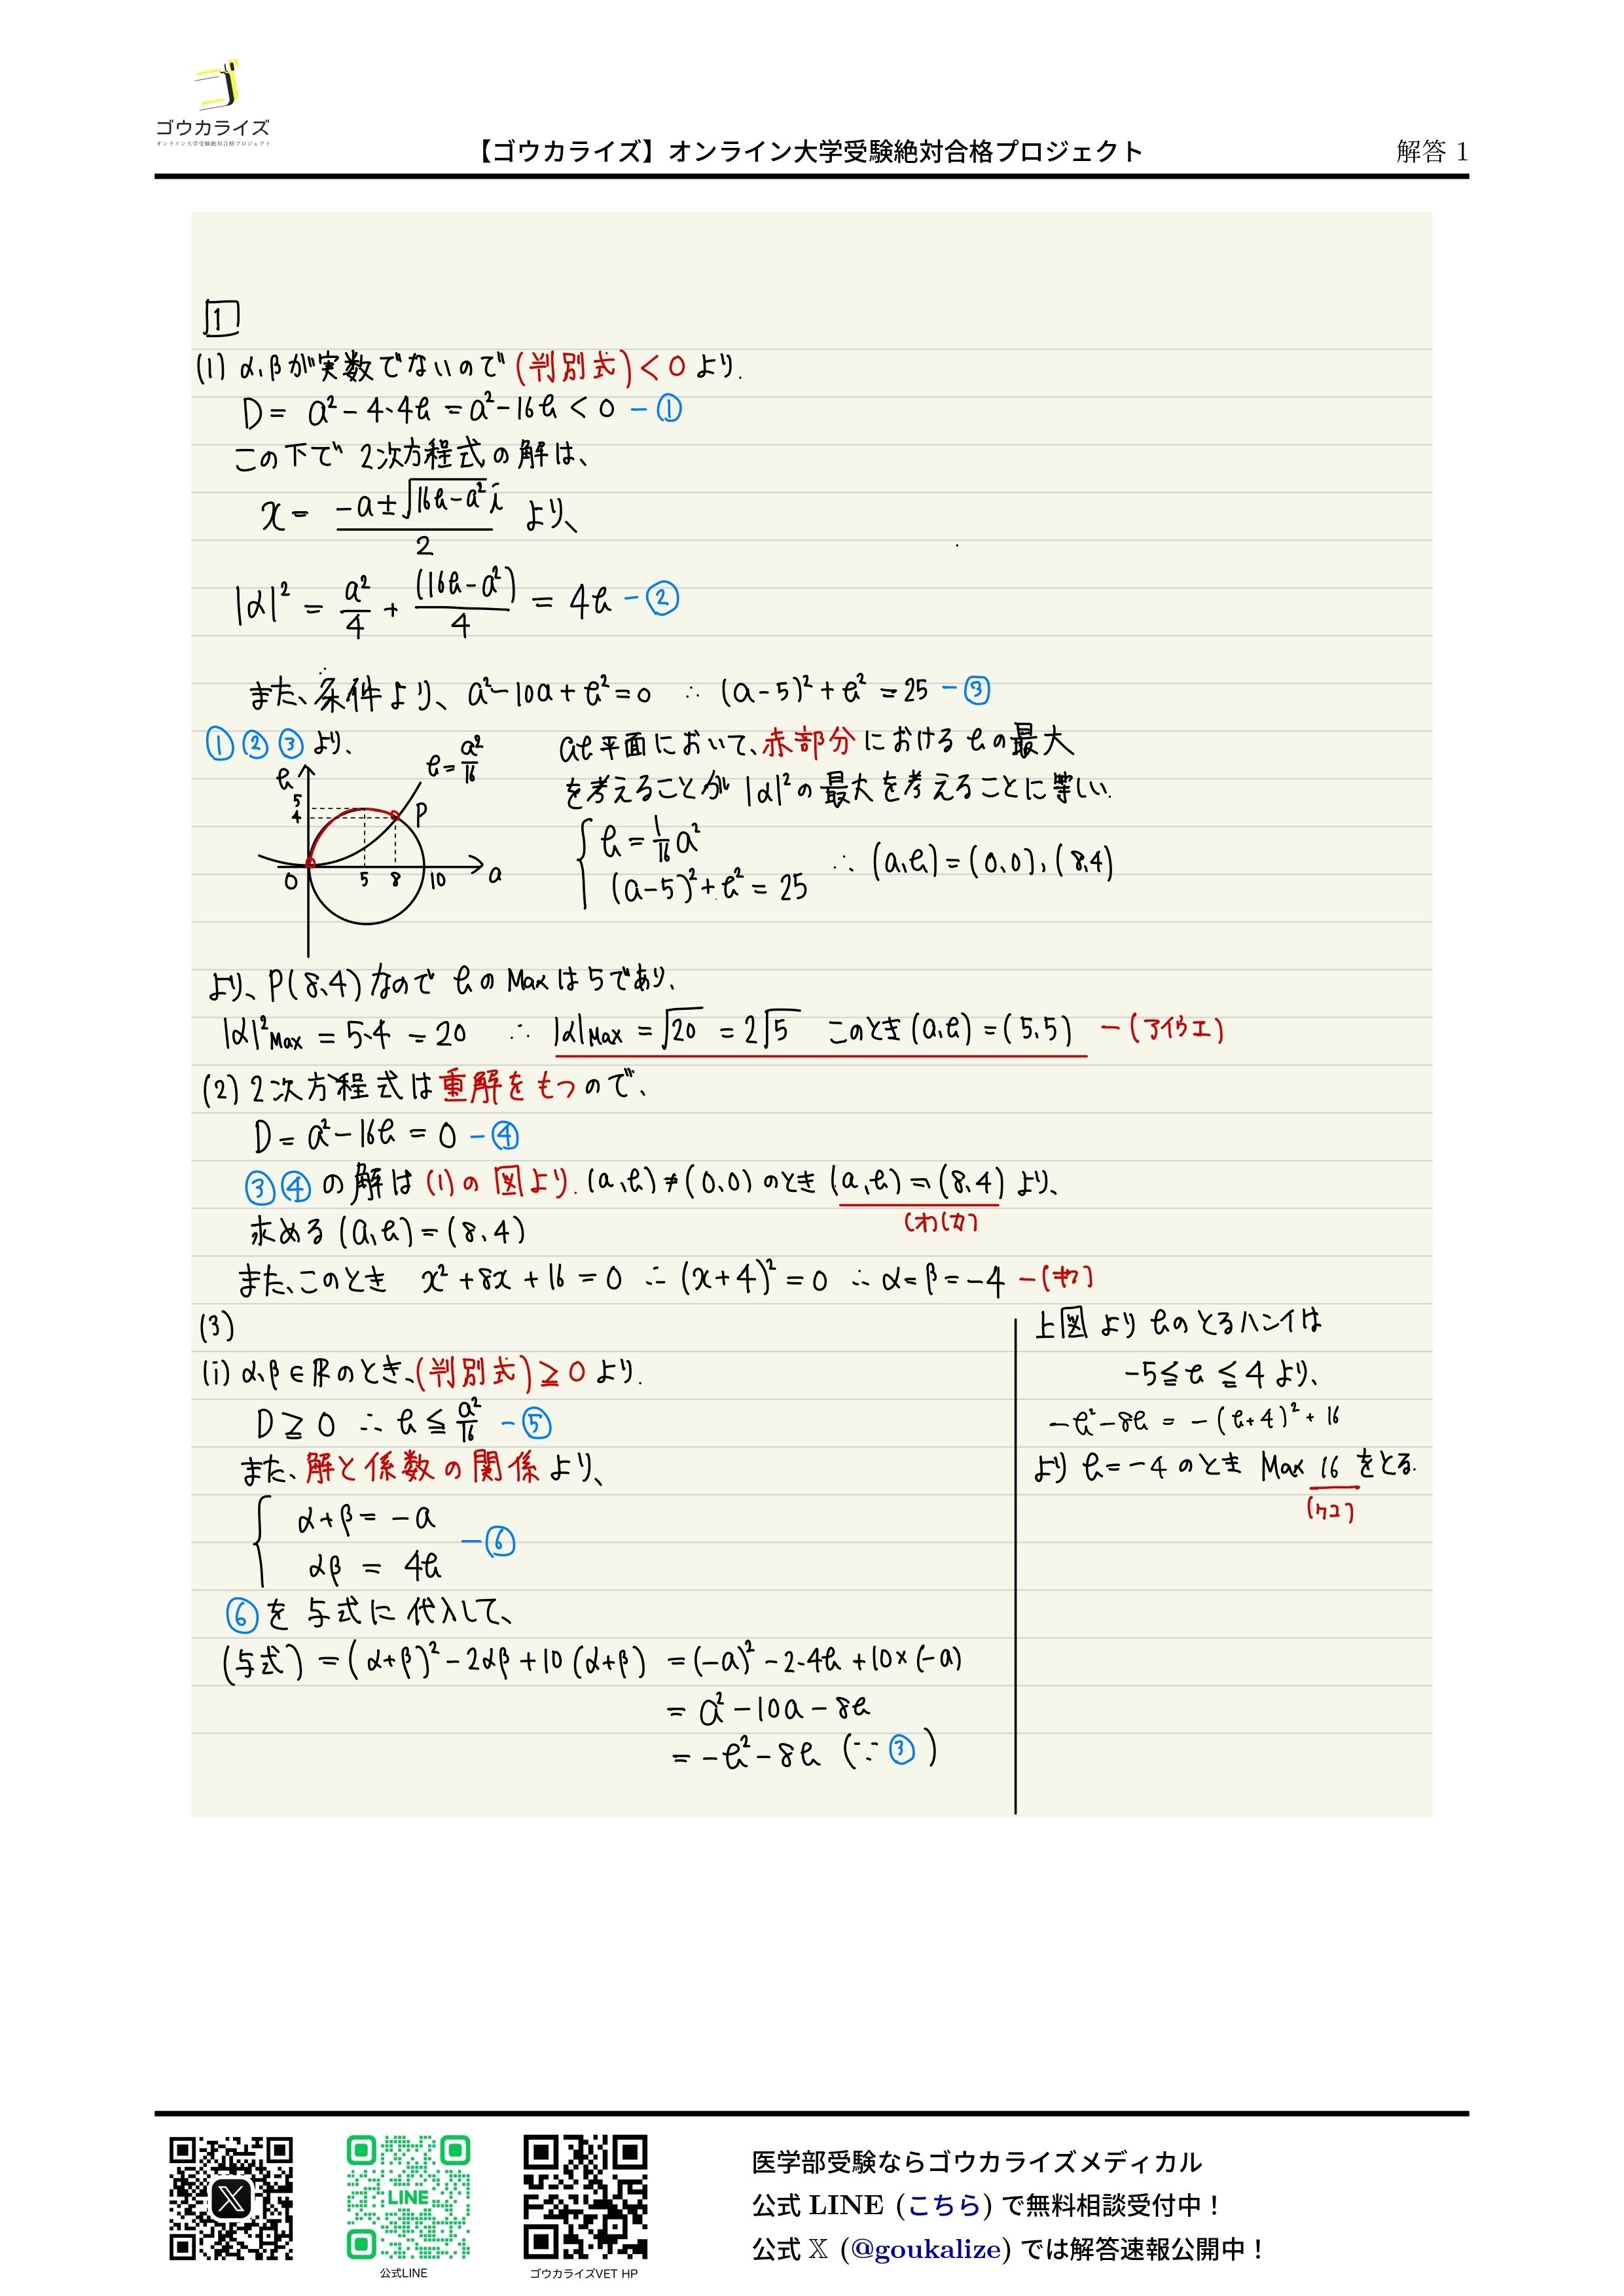 ゴウカライズ
オンライン大学受験絶対合格プロジェクト
【ゴウカライズ】オンライン大学受験絶対合格プロジェクト
解答 1
1
(1) α,βが実数でないので(判別式)<0より.
D = a² - 4・4b = a² - 16b < 0 - ①
この下で 2次方程式の解は、
x = (-a±√(16b-a²) i)/2 より、
|α|² = a²/4 + (16b-a²)/4 = 4b - ②
また、条件より、a²-10a+b²=0 ∴ (a-5)²+b²=25 - ③
①②③より、
b=a²/16
b
5
4
P
O
5
8
10
a
ab平面において、赤部分におけるbの最大
を考えることが |α|²の最大を考えることに等しい.
{ b = 1/16 a²
(a-5)²+b² = 25
∴ (a,b) = (0,0), (8,4)
より、P(8,4)なので bの Maxは5であり、
|α|²Max = 5・4 = 20 ∴ |α|Max = √20 = 2√5 このとき (a,b) = (5,5) - (アイウエ)
(2) 2次方程式は重解をもつので、
D = a² - 16b = 0 - ④
③④の解は(1)の図より. (a,b)≠(0,0)のとき (a,b)=(8,4) より、
(オ)(カ)
求める (a,b) = (8,4)
また、このとき x²+8x+16 = 0 ∴ (x+4)² = 0 ∴ α=β=-4 - (キク)
(3)
(i) α,β∈ℝのとき、(判別式)≧0より.
D≧0 ∴ b≦a²/16 - ⑤
また、解と係数の関係より、
{ α+β = -a
αβ = 4b
- ⑥
⑥を 与式に 代入して、
(与式) = (α+β)² - 2αβ + 10(α+β) = (-a)² - 2・4b + 10×(-a)
= a² - 10a - 8b
= -b² - 8b (∵③)
上図より bのとるハンイは
-5≦b≦4より、
-b²-8b = -(b+4)²+16
より b=-4のとき Max 16 をとる.
(ケコ)
LINE
公式LINE
ゴウカライズVET HP
医学部受験ならゴウカライズメディカル
公式 LINE (こちら) で無料相談受付中！
公式 𝕏 (@goukalize) では解答速報公開中！